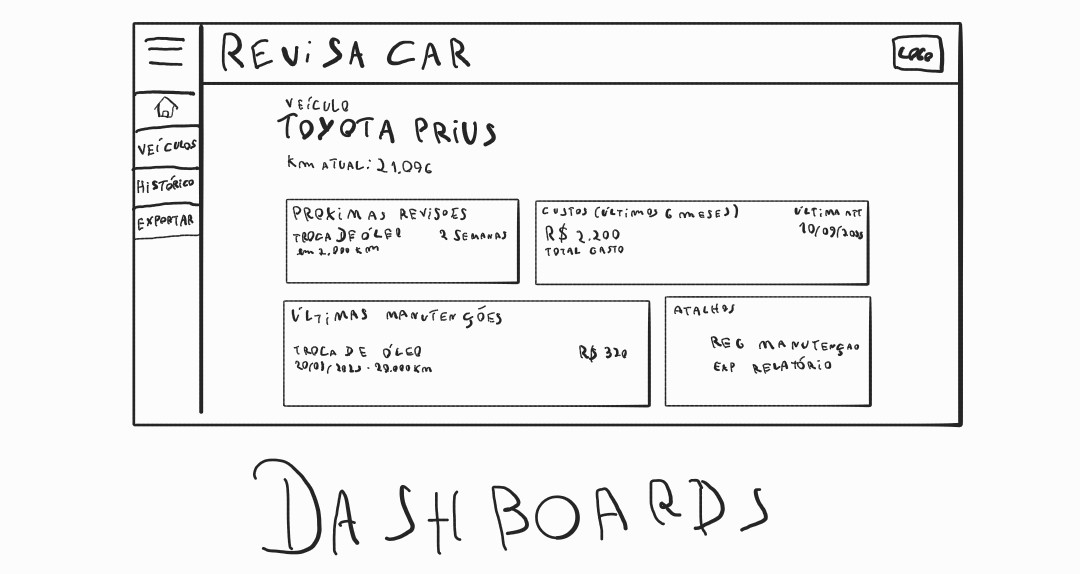 REVISA CAR
LOGO
VEÍCULOS
HISTÓRICO
EXPORTAR
VEÍCULO
TOYOTA PRIUS
Km ATUAL: 21.096
PROXIMAS REVISOES
TROCA DE ÓLEO 2 SEMANAS
em 2.000 km
CUSTOS (ÚLTIMOS 6 MESES) ÚLTIMA ATT
R$ 2.200 10/09/2025
TOTAL GASTO
ÚLTIMAS MANUTENÇÕES
TROCA DE ÓLEO R$ 320
20.000 Km
ATALHOS
REG MANUTENÇAO
EXP RELATÓRIO
DASHBOARDS